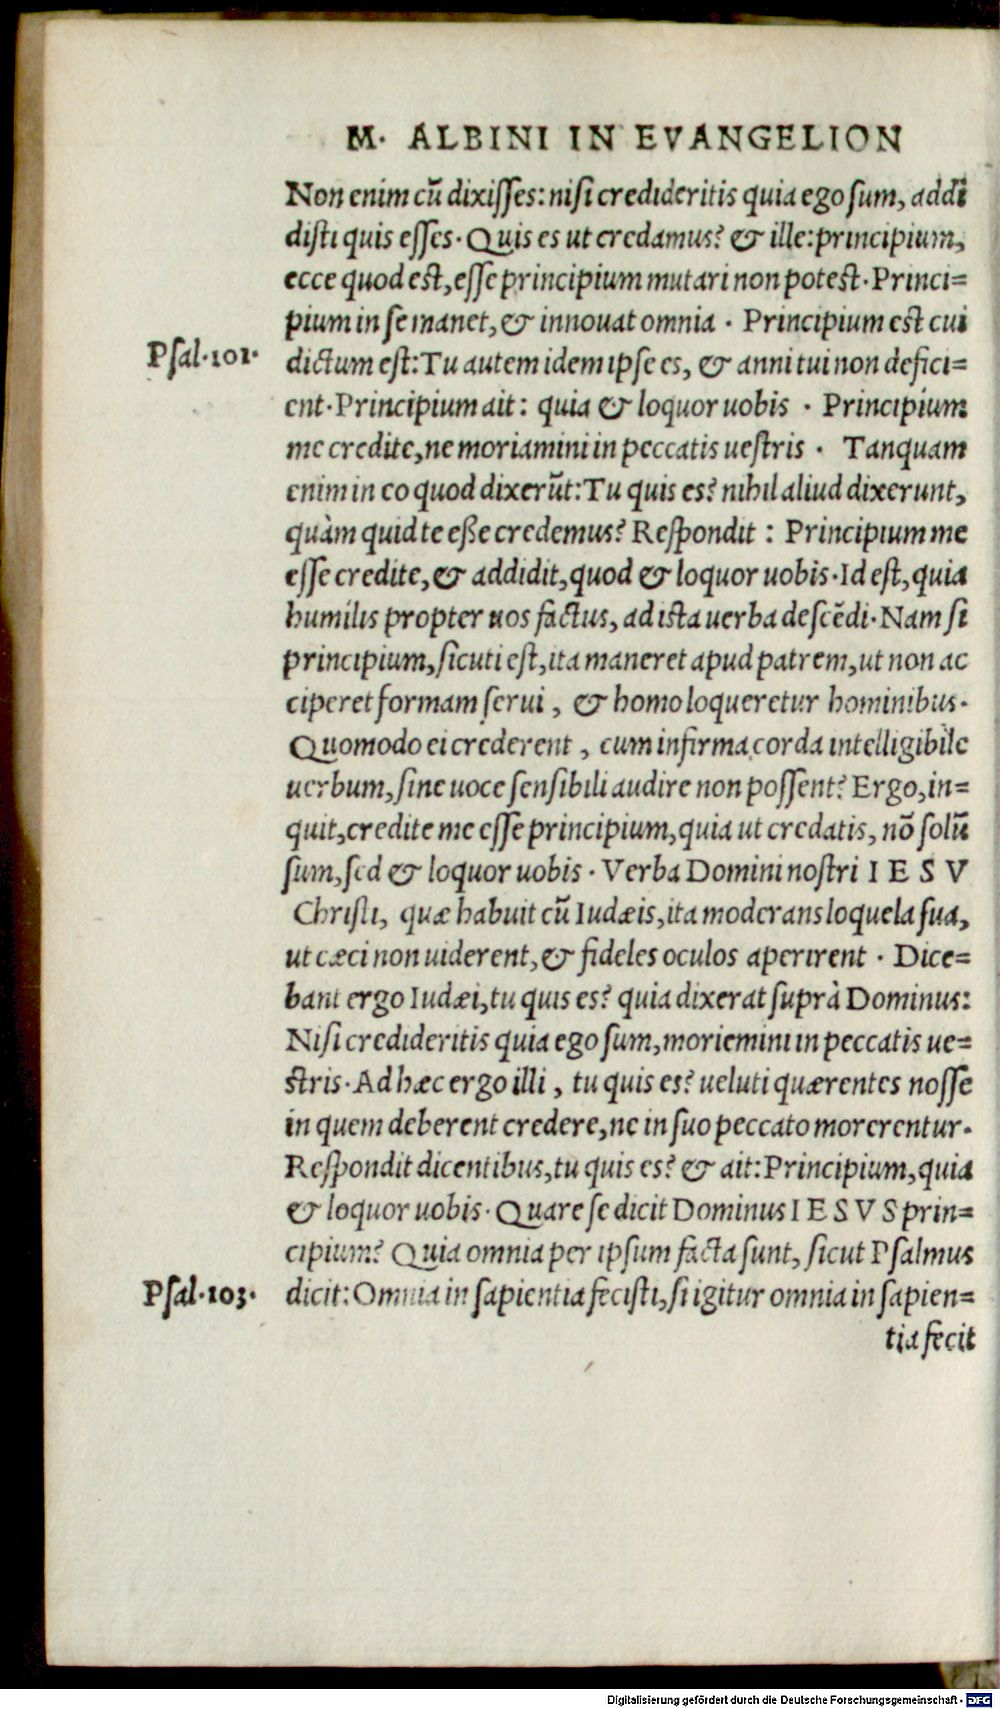 M. ALBINI IN EVANGELION
Non enim cũ dixisses: nisi credideritis quia ego sum, addĩ
disti quis esses. Quis es ut credamus? & ille: principium,
ecce quod est, esse principium mutari non potest. Princi=
pium in se manet, & innouat omnia. Principium est cui
Psal. 101.
dictum est: Tu autem idem ipse es, & anni tui non defici=
ent. Principium ait: quia & loquor uobis. Principium
me credite, ne moriamini in peccatis uestris. Tanquam
enim in eo quod dixerũt: Tu quis es? nihil aliud dixerunt,
quàm quid te eße credemus? Respondit: Principium me
esse credite, & addidit, quod & loquor uobis. Id est, quia
humilis propter uos factus, ad ista uerba descẽdi. Nam si
principium, sicuti est, ita maneret apud patrem, ut non ac
ciperet formam serui, & homo loqueretur hominibus.
Quomodo ei crederent, cum infirma corda intelligibile
uerbum, sine uoce sensibili audire non possent? Ergo, in=
quit, credite me esse principium, quia ut credatis, nõ solũ
sum, sed & loquor uobis. Verba Domini nostri IESV
Christi, quæ habuit cũ Iudæis, ita moderans loquela sua,
ut cæci non uiderent, & fideles oculos aperirent. Dice=
bant ergo Iudæi, tu quis es? quia dixerat suprà Dominus:
Nisi credideritis quia ego sum, moriemini in peccatis ue=
stris. Ad hæc ergo illi, tu quis es? ueluti quærentes nosse
in quem deberent credere, ne in suo peccato morerentur.
Respondit dicentibus, tu quis es? & ait: Principium, quia
& loquor uobis. Quare se dicit Dominus IESVS prin=
cipium? Quia omnia per ipsum facta sunt, sicut Psalmus
Psal. 103.
dicit: Omnia in sapientia fecisti, si igitur omnia in sapien=
tia fecit
Digitalisierung gefördert durch die Deutsche Forschungsgemeinschaft - DFG